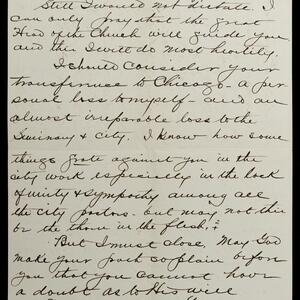 Still I would not dictate. I
can only pray that the great
Head of the Church will guide you
and this I will do most heartily.
I should consider your
transferrence to Chicago - a per
sonal loss to myself - and an
almost irreparable loss to the
Seminary & city. I know how some
things grate against you in the
city work especially in the lack
of unity & sympathy among all
the city pastors - but may not this
be the thorn in the flesh,?
But I must close. May God
make your path so plain before
you that you cannot have
a doubt as to His will